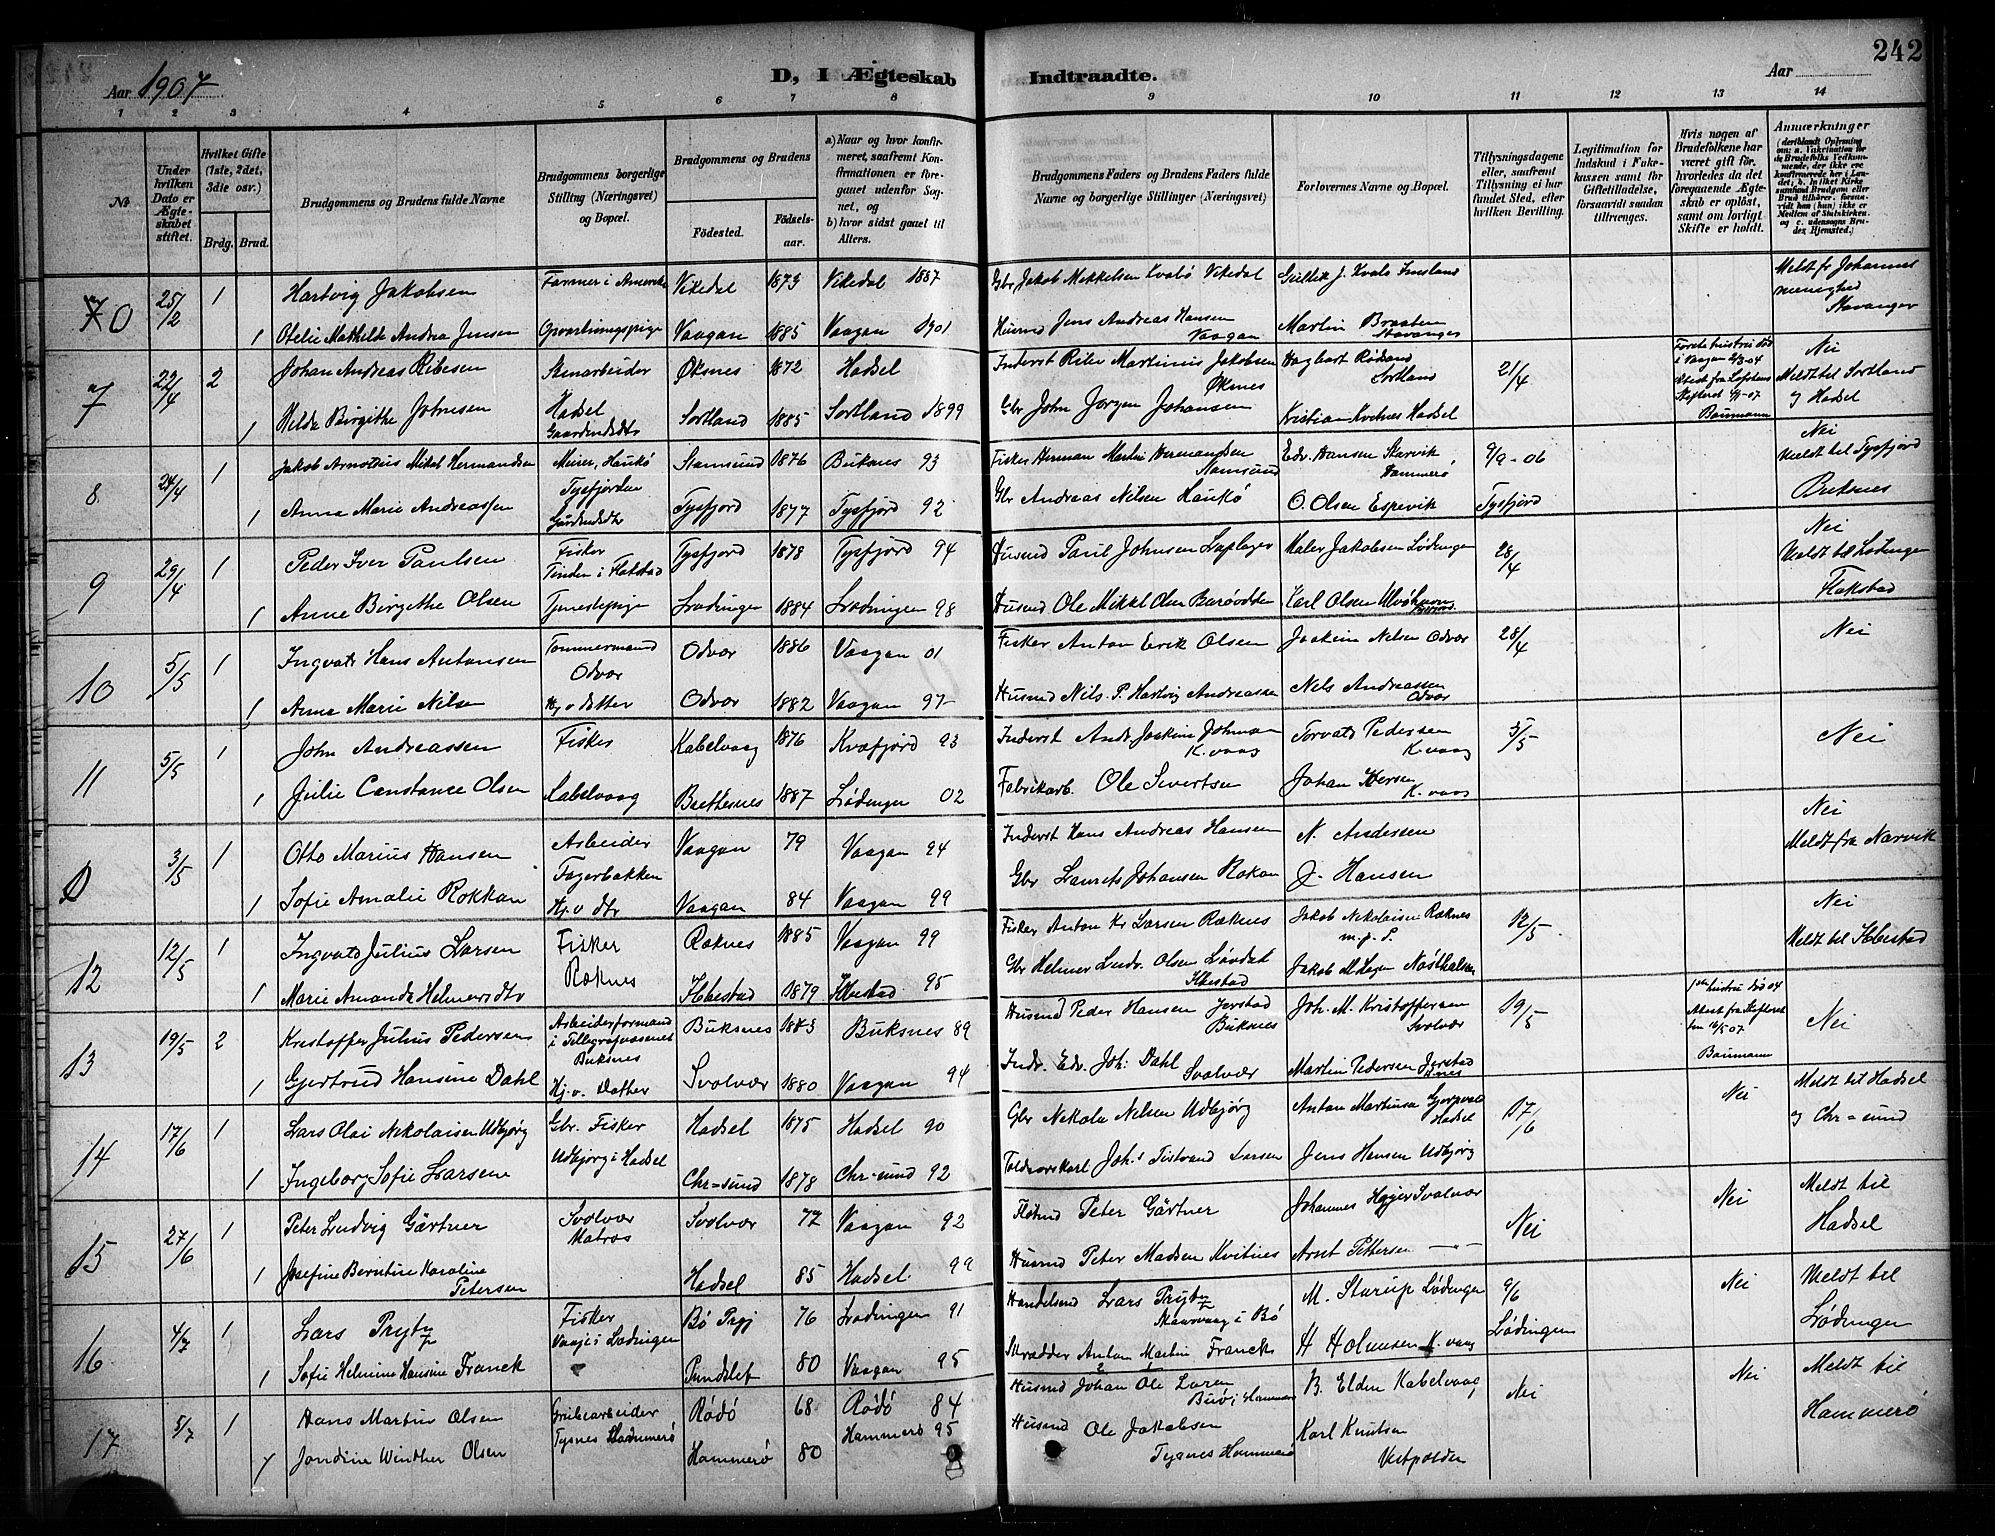 Aar 1907
D, I Ægteskab
Indtraadte.
Aar
242
1 2 3 4 5 6 7 8 9 10 11 12 13 14
No
Under hvilken Dato er Ægteskabet stiftet.
Hvilket Gifte (1ste, 2det, 3die osv.)
Brdg. Brud.
Brudgommens og Brudens fulde Navne
Brudgommens borgerlige Stilling (Næringsvei) og Bopæl.
Brudgommens og Brudens
Fødested.
Fødselsaar.
a) Naar og hvor konfirmeret, saafremt Konfirmationen er foregaaet udenfor Sognet, og
b) hvor sidst gaaet til Alters.
Brudgommens Faders og Brudens Faders fulde Navne og borgerlige Stillinger (Næringsvei)
Forlovernes Navne og Bopæl.
Tillysningsdagene eller, saafremt Tillysning ei har fundet Sted, efter hvilken Bevilling.
Legitimation for Indskud i Enkekassen samt for Giftetilladelse, forsaavidt saadan tiltrænges.
Hvis nogen af Brudefolkene har været gift før, hvorledes da det foregaaende Ægteskab er opløst, samt om lovligt Skifte er holdt.
Anmærkninger
0 25/2 1 Hartvig Jakobsen Farmer i Amerika Vikedal 1873 Vikedal 1887 Gbr Jakob Mikkelsen Kvalø Vikedal Meldt fr Johannes menighed Stavanger
1 Otelie Mathilde Andrea Jensen Opvartningspige Vaagan 1885 Vaagan 1901 Jens Andreas Hansen Vaagan Martin Braaten Stavanger
7 22/4 2 Johan Andreas Ribesen Stenarbeider Øksnes 1872 Hadsel Inderst Ribe Martinius Jakobsen Øksnes Hagbart Rødsand Sortland 21/4 Nei Meldt til Sortland og Hadsel
1 Hilda Birgithe Johnsen Hadsel Gaardmdtr Sortland 1885 Sortland 1899 Gbr John Jørgen Johansen Kristian Kvitnes Hadsel Baumann
8 24/4 1 Jakob Arnoldus Mikal Hermandsen Meier, Haukø Stamsund 1876 Buksnes 93 Fisker Herman Martin Hermandsen Stamsund Edv. Hansen Skarvik Hammerø 9/9-06 Nei Meldt til Tysfjord
1 Anna Marie Andreassen Tysfjorden Gårdmdtr Tysfjord 1877 Tysfjord 92 Gbr Andreas Nilsen Haukø O. Olsen Espevik Tysfjord Buksnes
9 29/4 1 Peder Iver Paulsen Fisker Tinden i Flakstad Tysfjord 1878 Tysfjord 94 Husmd Paul Johnsen Maler Jakobsen Lødingen 28/4 Nei Meldt til Lødingen
1 Anne Birgithe Olsen Tjenestepige Lødingen 1884 Lødingen 98 Husmd Ole Mikkel Olsen Karl Olsen Flakstad
10 5/5 1 Ingvald Hans Antonsen Tømmermand Odvær Odvær 1886 Vaagan 01 Fisker Anton Erik Olsen Joakim Nilsen Odvær 28/4 Nei
1 Anna Marie Nilsen Hj v datter Odvær 1882 Vaagan 97 Husmd Nils P. Hartvig Andreassen Nils Andreassen Odvær
11 5/5 1 John Andreassen Fisker Kabelvaag 1876 Kvæfjord 93 Inderst And. Joakim Johnsen K.vaag Torvald Pedersen K.vaag 5/5 Nei
1 Julie Constance Olsen Kabelvaag 1887 Lødingen 02 Fabrikarb. Ole Sivertsen Johan Iversen K.vaag
0 3/5 1 Otto Marius Hansen Arbeider Vaagan 79 Vaagan 94 Inderst Hans Andreas Hansen N. Andersen Nei Meldt fra Narvik
1 Sofie Amalie Rokkan Fagerbakken Hj.v dtr Vaagan 84 Vaagan 99 Gbr Laurits Johansen Rokan J. Hansen
12 12/5 1 Ingvald Julius Larsen Fisker Raknes Røknes 1885 Vaagan 99 Fisker Anton Kr Larsen Ræknes Jakob Nikolaisen Ræknes m.p.P. 12/5 Nei Meldt til Ibestad
1 Marie Amanda Helmersdtr Ibestad 1879 Ibestad 95 Gbr Helmer Ludv. Olsen Løvdal Ibestad
13 19/5 2 Kristoffer Julius Pedersen Arbeiderformand i Tillegrafvæsenet Buksnes Buksnes 1883 Buksnes 89 Husmd Peder Hansen Jerstad Buksnes Joh. M. Kristoffersen Svolvær 19/5 Nei
1 Gjertrud Hansine Dahl Hj.v. Datter Svolvær 1880 Vaagan 94 Indr. Edv. Joh. Dahl Svolvær Martin Pedersen Jerstad Baumann
14 17/6 1 Lars Olai Nikolaisen Udbjørg Gbr. Fisker Hadsel 1875 Hadsel 90 Gbr Nikolai Nilsen Udbjørg Anton Martinsen Hadsel 17/6 Nei Meldt til Hadsel og Chr=sund
1 Ingeborg Sofie Larsen Udbjørg i Hadsel Chr=sund 1878 Chr=sund 92 Joh. Tistrand Larsen Jens Hansen Udbjørg
15 27/6 1 Peter Ludvig Gärtner Svolvær Matros Svolvær 77 Vaagan 92 Peter Gärtner Johannes Høyer Svolvær Nei Nei Meldt til Hadsel
1 Josefine Berntine Karoline Petersen Hadsel 85 Hadsel 99 Husmd Peter Madsen Kvitnes Arnt Pettersen — " —
16 4/7 1 Lars Prytz Fisker Vaaje i Lødingen Bø Prgj 76 Lødingen 91 Handelsmd Lars Prytz i Bø M. Sturup Lødingen 9/6 Nei Meldt til Lødingen
1 Sofie Helmine Hansine Franck 80 Vaagan 95 Skrædder Anton Martin Franck H Holmsen K.vaag Lødingen
17 5/7 1 Hans Martin Olsen Grubearbeider Rødø 68 Rødø 84 Husmd Johan Ole Larsen i Hammerø B. Elden Kabelvaag Nei Nei Meldt til Hammerø
1 Jondine Winther Olsen Tysnes Hammerø Hammerø 80 Hammerø 95 Husmd Ole Jakobsen Tysnes Hammerø Karl Knutsen Vestpolden